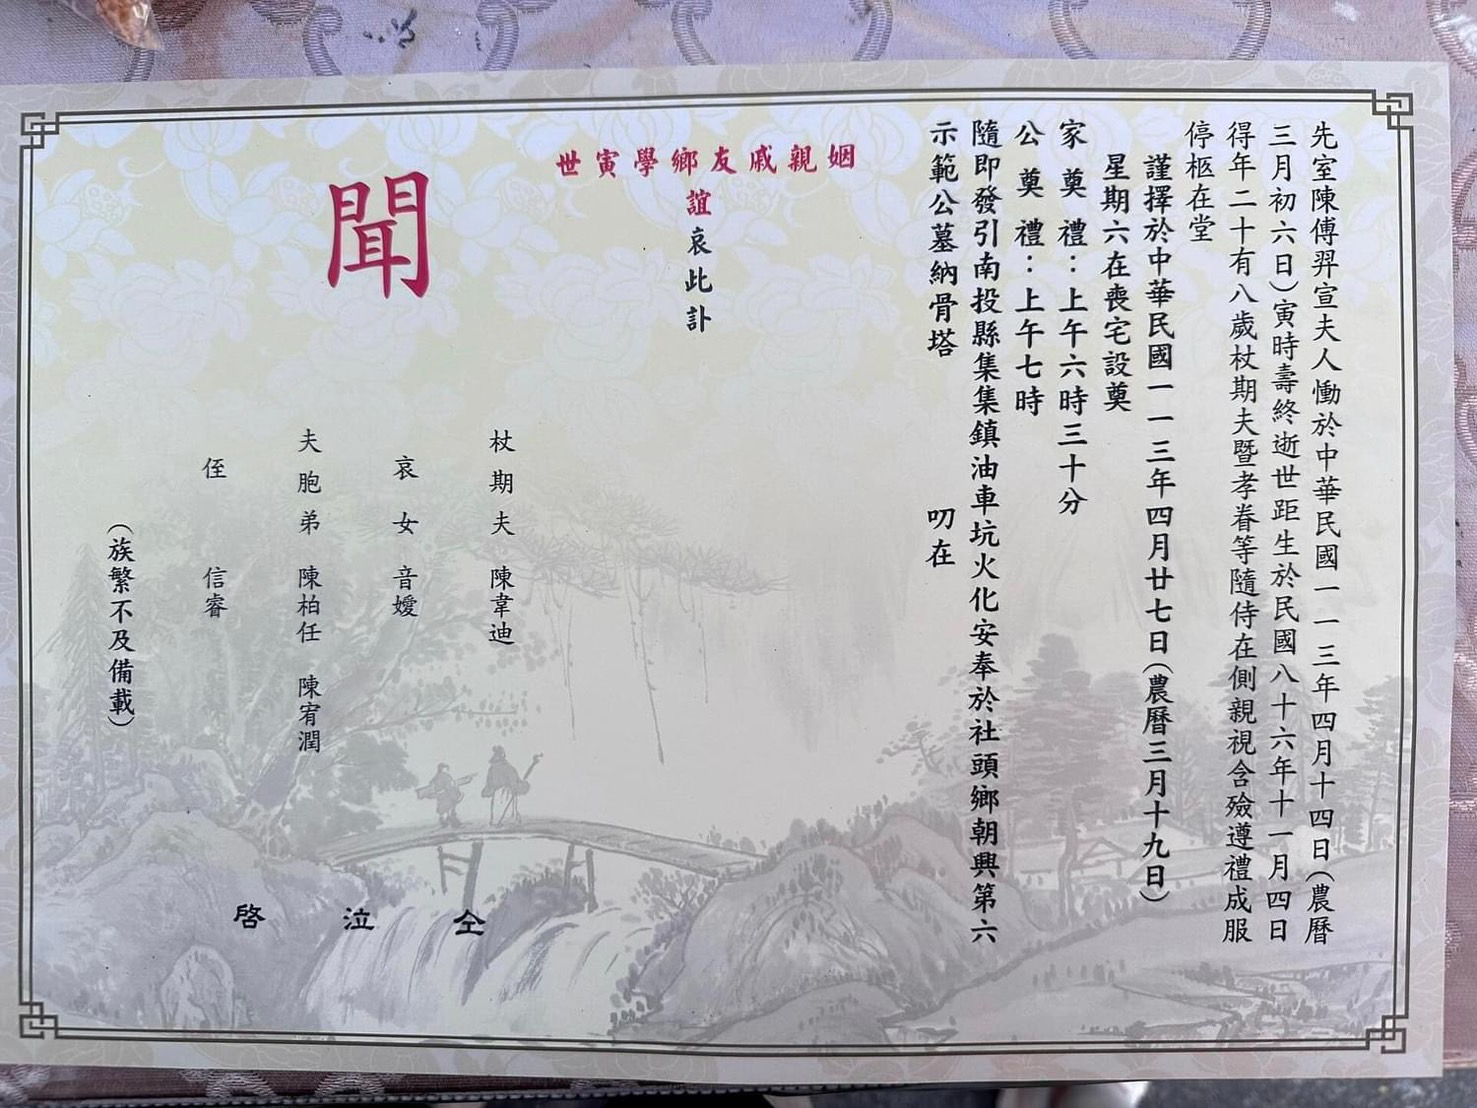 先室陳傅羿宣夫人慟於中華民國一一三年四月十四日(農曆
三月初六日)寅時壽終逝世距生於民國八十六年十一月四日
得年二十有八歲杖期夫暨孝眷等隨侍在側親視含殮遵禮成服
停柩在堂
謹擇於中華民國一一三年四月廿七日(農曆三月十九日)
星期六在喪宅設奠
家奠禮:上午六時三十分
公奠禮:上午七時
隨即發引南投縣集集鎮油車坑火化安奉於社頭鄉朝興第六
示範公墓納骨塔 叨在
姻親戚友鄉學寅世
誼哀此訃
聞
杖期夫 陳韋迪
哀女 音嬡
夫胞弟 陳柏任 陳宥潤
侄 信睿
(族繁不及備載)
仝泣啓